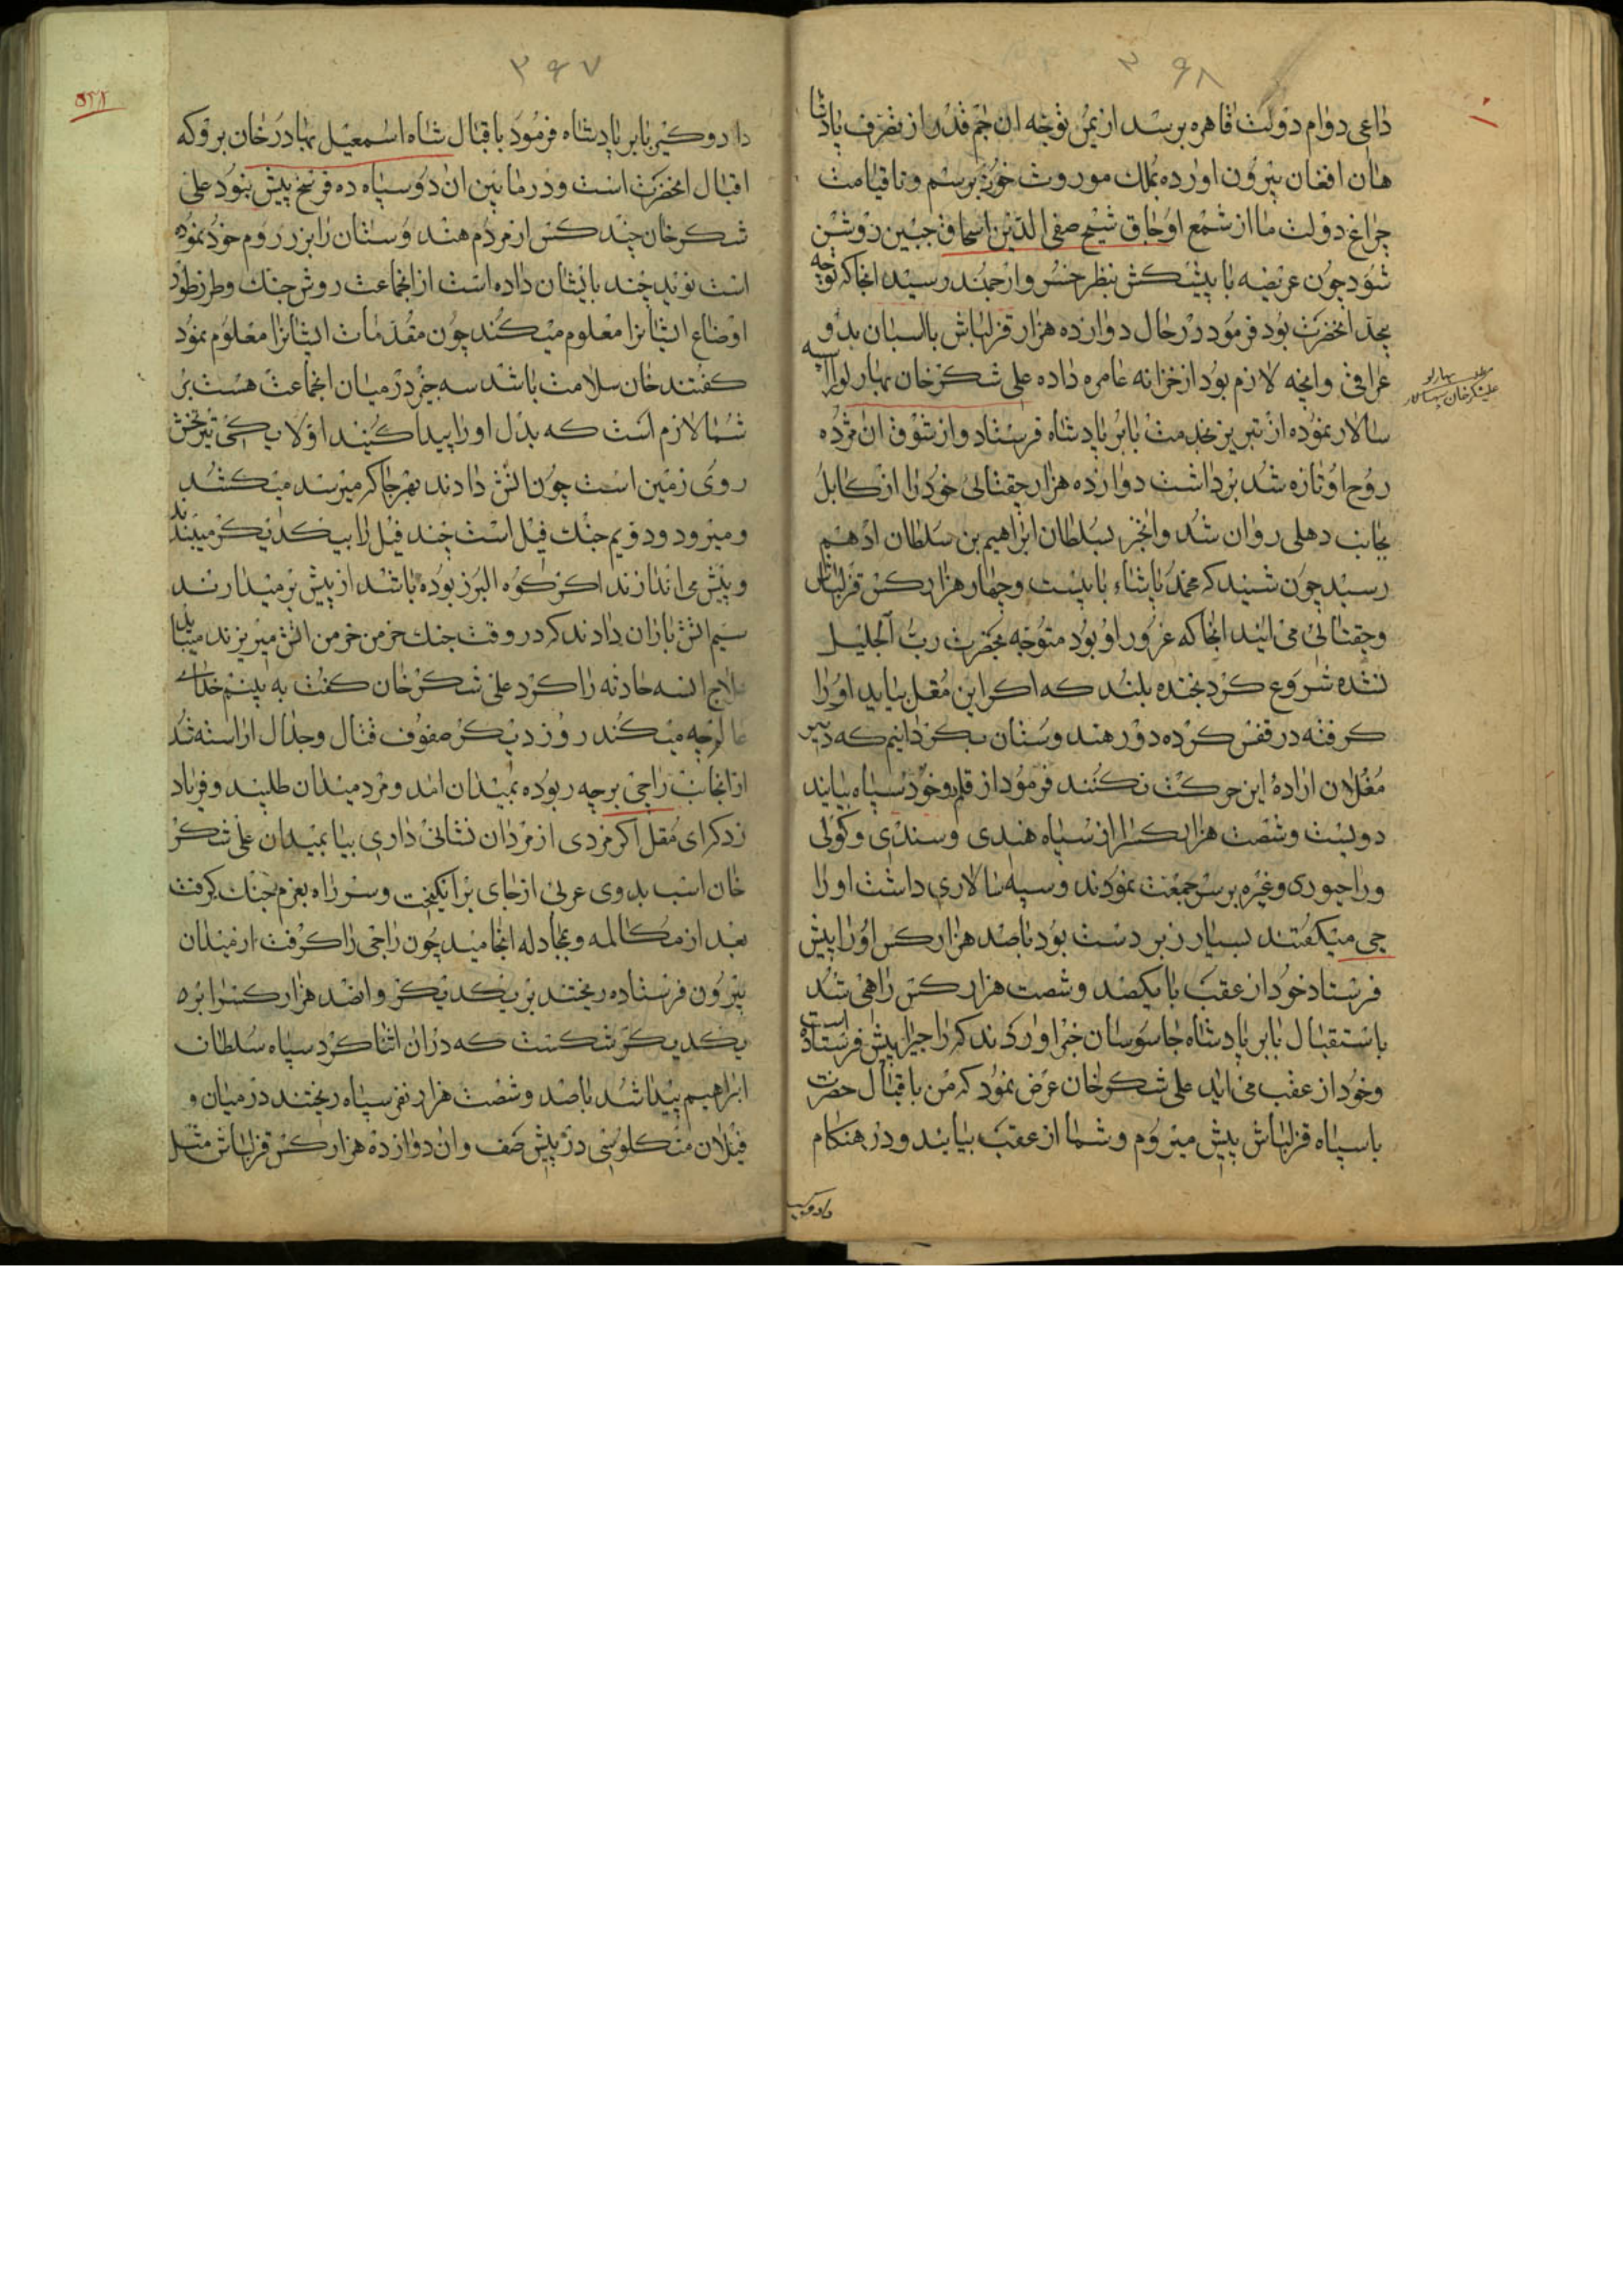 ۳۶۸
داعی دوام دولت قاهره برسد از یمن توجه ان جم قدر از تصرف پادشا
هان افغان بیرون اورده بملک موروث خود برسم و تا قیامت
چراغ دولت ما از شمع اوجاق شیخ صفی الدین اسحاق جبین روشن
شود چون عریضه با پیشکش بنظر خسرو ارجمند رسید انجا که توجه
بجد انحضرت بود فرمود در حال دوازده هزار قزلباش با اسبان بدو
عراقی و انچه لازم بود از خزانه عامره داده علی شکر خان بهارلو را سپه
سالار نموده از تبریز بخدمت بابر پادشاه فرستاد و از شوق ان مژده
روح او تازه شد برداشت دوازده هزار چقتائی خود را از کابل
بجانب دهلی روان شد و انخبر بسلطان ابراهیم بن سلطان ادهم
رسید چون شنید که محمد پاشاء با بیست و چهار هزار کس قزلباش
و چقتائی می ایند انجا که غرور او بود متوجه بحضرت رب الجلیل
نشده شروع کرد بخنده بلند که اکر این مقل بیاید او را
کرفته در قفس کرده دور هندوستان بکردانیم که دیکر
مغلان ارادهٔ این حرکت نکنند فرمود از قلمرو خود سپاه بیایند
دویست و شصت هزار کس از سپاه هندی و سندی و کولی
و راجپوری و غیره بر سر جمعیت نمودند و سپه سالاری داشت او را
جی میکفتند بسیار زبر دست بود با صد هزار کس او را پیش
فرستاد خود از عقب با یکصد و شصت هزار کس راهی شد
باستقبال بابر پادشاه جاسوسان خبر اوردند که راجی را پیش فرستاده است
و خود از عقب می اید علی شکر خان عرض نمود که من باقبال حضرت
با سپاه قزلباش پیش میروم و شما از عقب بیایند و در هنکام
دارو کیر
بهارلو
علیشکر خان سپهسالار
۳۶۷
دارو کیر بابر پادشاه فرمود باقبال شاه اسمعیل بهادر خان برو که
اقبال انحضرت است و در مابین ان دو سپاه ده فرسخ پیش نبود علی
شکر خان چند کس از مردم هندوستان را بزر روم خود نموده
است نوید چند بایشان داده است از انجماعت روش جنک و طرز طور
اوضاع ایشانرا معلوم میکند چون مقدمات ایشانرا معلوم نمود
کفتند خان سلامت باشد سه چیز در میان انجماعت هست بر
شما لازم است که بدل او را پیدا کنید اولا یکی تیر تخش
روی زمین است چون اتش دادند بهر جا که میرسد میکشد
و میرود و دویم جنک فیل است چند فیل را بیکدیکر میبندند
و پیش می اندازند اکر کوه البرز بوده باشد از پیش بر میدارند
سیم اتش باران دادند که در وقت جنک خرمن خرمن اتش میریزند میباید
علاج انسه حادثه را کرد علی شکر خان کفت به بینیم خدای
عالم چه میکند روز دیکر صفوف قتال و جدال اراسته شد
از انجانب راجی برچه ربوده بمیدان امد و مرد میدان طلبید و فریاد
زد که ای مقل اکر مردی از مردان نشانی داری بیا بمیدان علی شکر
خان اسب بدوی عربی از جای برانکیخت و سر راه بعزم جنک کرفت
بعد از مکالمه و بمجادله انجامید چون راجی را کرفت از میدان
بیرون فرستاده ریختند بر یکدیکر و انصد هزار کس را بره
یکدیکر شکست که در ان اثنا کرد سپاه سلطان
ابراهیم پیدا شد با صد و شصت هزار نفر سپاه ریختند در میان و
فیلان منکلوسی در پیش صف و ان دوازده هزار کس قزلباش مثل